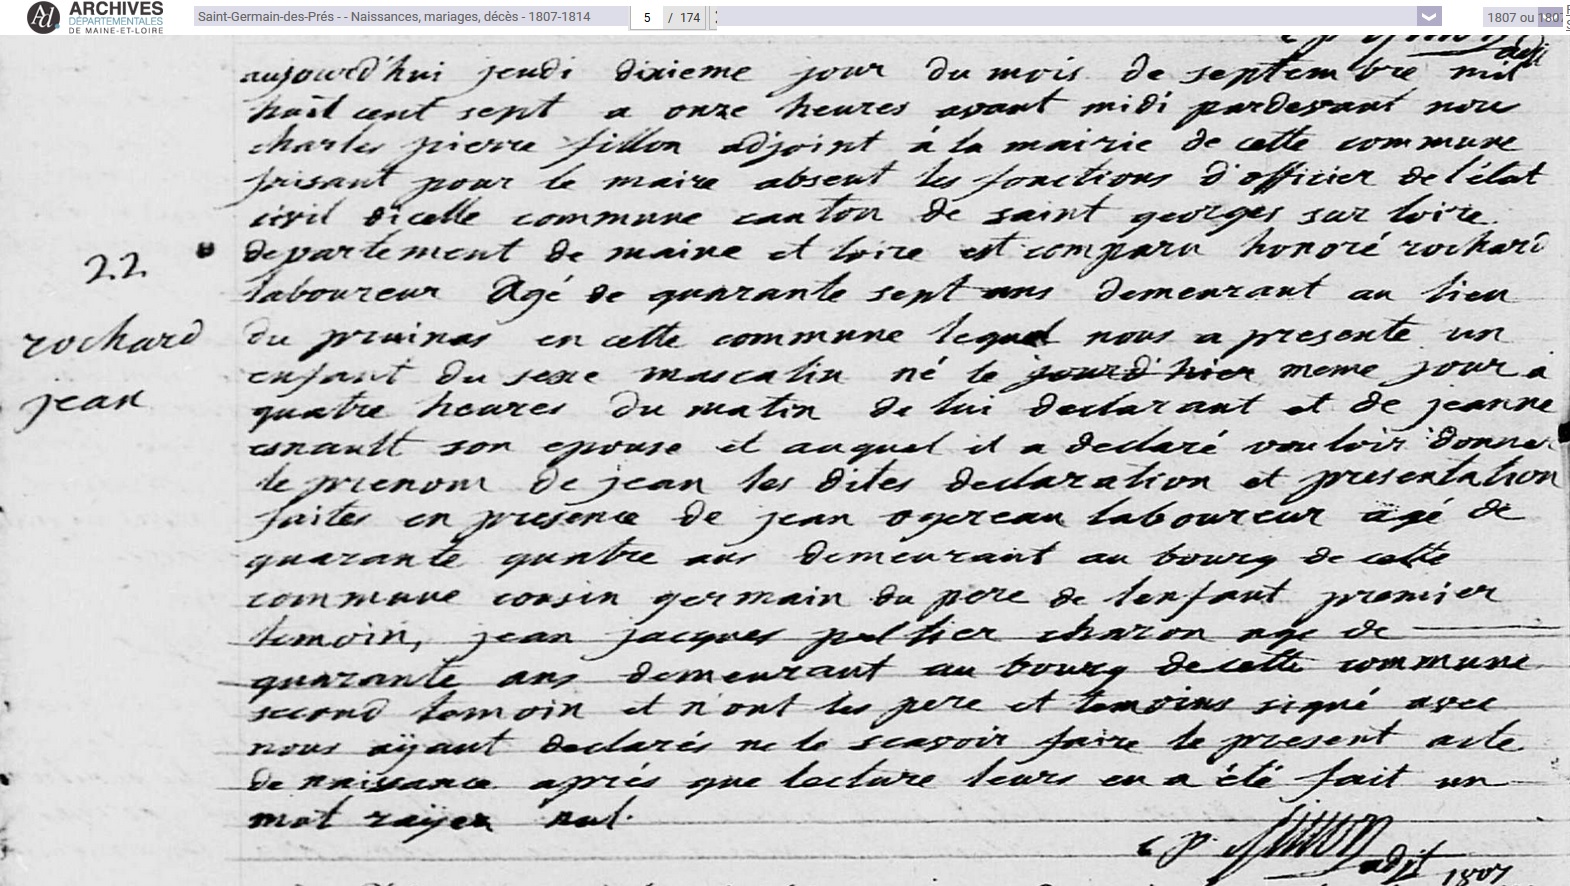 ARCHIVES
DÉPARTEMENTALES
DE MAINE-ET-LOIRE
Saint-Germain-des-Prés - - Naissances, mariages, décès - 1807-1814
5 / 174
1807 ou 1807
aujourd'hui jeudi dixieme jour du mois de septembre mil
huit cent sept a onze heures avant midi pardevant nous
charles pierre fillon adjoint à la mairie de cette commune
faisant pour le maire absent les fonctions d'officier de l'état
civil dicelle commune canton de saint georges sur loire
departement de maine et loire est comparu honoré rochard
22
laboureur Agé de quarante sept ans demeurant au lieu
rochard
du pruinas en cette commune lequel nous a presente un
enfant du sexe masculin né le jourd'hier meme jour a
jean
quatre heures du matin de lui declarant et de jeanne
esnault son epouse et auquel il a declaré vouloir donner
le prenom de jean les dites declaration et presentation
faites en presence de jean ogereau laboureur agé de
quarante quatre ans demeurant au bourg de cette
commune cousin germain du pere de lenfant premier
temoin, jean jacques peltier charon age de
quarante ans demeurant au bourg de cette commune
second temoin et n'ont les pere et temoins signé avec
nous aÿant declarés ne le scavoir faire le present acte
de naissance aprés que lecture leurs en a été fait un
mot raÿer nul.
c p fillon
adjt 1807